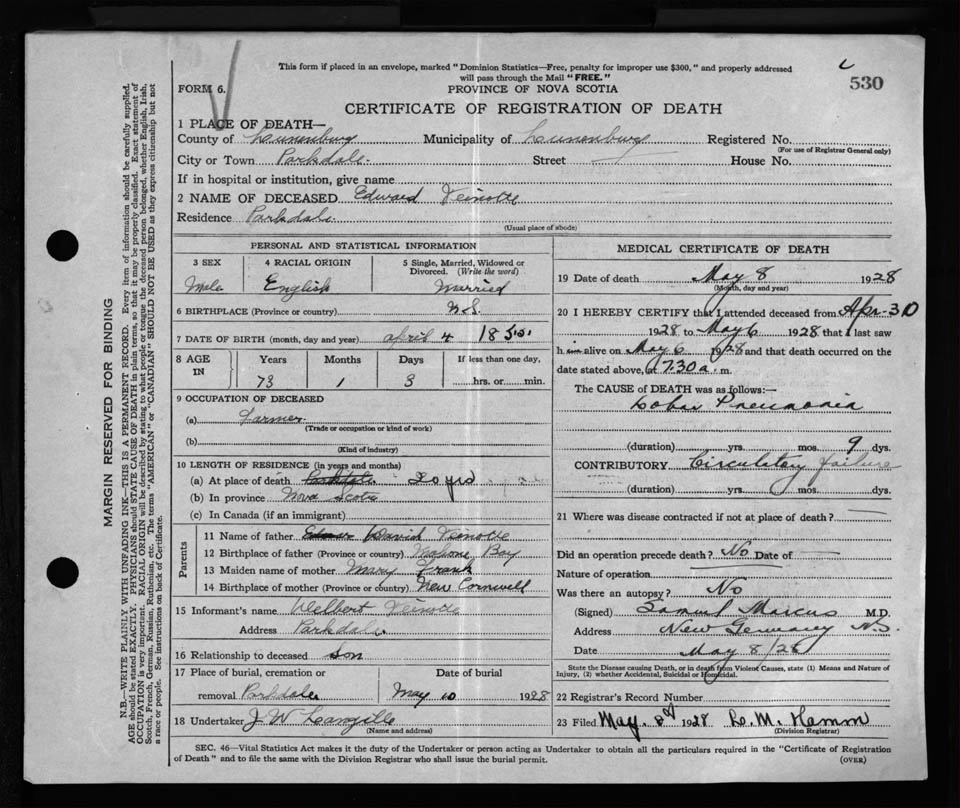 This form if placed in an envelope, marked "Dominion Statistics—Free, penalty for improper use $300," and properly addressed
will pass through the Mail "FREE."
530
FORM 6.
PROVINCE OF NOVA SCOTIA
CERTIFICATE OF REGISTRATION OF DEATH
1 PLACE OF DEATH—
County of Lunenburg Municipality of Lunenburg Registered No.
(For use of Registrar General only)
City or Town Parkdale. Street — House No.
If in hospital or institution, give name
2 NAME OF DECEASED Edward Veinotte
Residence Parkdale.
(Usual place of abode)
PERSONAL AND STATISTICAL INFORMATION
3 SEX 4 RACIAL ORIGIN 5 Single, Married, Widowed or Divorced. (Write the word)
Male English Married
6 BIRTHPLACE (Province or country) N.S.
7 DATE OF BIRTH (month, day and year) april 4 1855
8 AGE IN Years Months Days If less than one day,
73 1 3 hrs. or min.
9 OCCUPATION OF DECEASED
(a) Farmer
(Trade or occupation or kind of work)
(b)
(Kind of industry)
10 LENGTH OF RESIDENCE (in years and months)
(a) At place of death Parkdale 20 yrs
(b) In province Nova Scotia
(c) In Canada (if an immigrant)
Parents
11 Name of father David Veinotte
12 Birthplace of father (Province or country) Mahone Bay
13 Maiden name of mother Mary Frank
14 Birthplace of mother (Province or country) New Cornwell
15 Informant's name Welbert Veinotte
Address Parkdale.
16 Relationship to deceased son
17 Place of burial, cremation or Date of burial
removal Parkdale May 10 1928
18 Undertaker J. W Langille
(Name and address)
MEDICAL CERTIFICATE OF DEATH
19 Date of death May 8 1928
(Month, day and year)
20 I HEREBY CERTIFY that I attended deceased from Apr-30
1928 to May 6 1928 that I last saw
h im alive on May 6 1928 and that death occurred on
date stated above, at 7.30 a. m.
The CAUSE of DEATH was as follows:—
Lobar Pneumonia
(duration) yrs. mos. 9 dys.
CONTRIBUTORY Circulatory failure
(duration) yrs. mos. dys.
21 Where was disease contracted if not at place of death? —
Did an operation precede death? No Date of —
Nature of operation
Was there an autopsy? No
(Signed) Samuel Marcus M.D.
Address New Germany N.S.
Date May 8/28
State the Disease causing Death, or in death from Violent Causes, state (1) Means and Nature of
Injury, (2) whether Accidental, Suicidal or Homicidal.
22 Registrar's Record Number
23 Filed May. 8th 1928 L. M. Hamm
(Division Registrar)
SEC. 46—Vital Statistics Act makes it the duty of the Undertaker or person acting as Undertaker to obtain all the particulars required in the "Certificate of Registration
of Death" and to file the same with the Division Registrar who shall issue the burial permit.
(OVER)
MARGIN RESERVED FOR BINDING
N.B.—WRITE PLAINLY WITH UNFADING INK—THIS IS A PERMANENT RECORD. Every item of information should be carefully supplied.
AGE should be stated EXACTLY. PHYSICIANS should STATE CAUSE OF DEATH in plain terms, so that it may be properly classified. Exact statement of
OCCUPATION is very important. RACIAL ORIGIN will be described by stating to what people or tongue the deceased person belonged, whether English, Irish,
Scotch, French, German, Russian, Ruthenian, etc. The terms "AMERICAN" or "CANADIAN" SHOULD NOT BE USED as they express citizenship but not
a race or people. See instructions on back of Certificate.